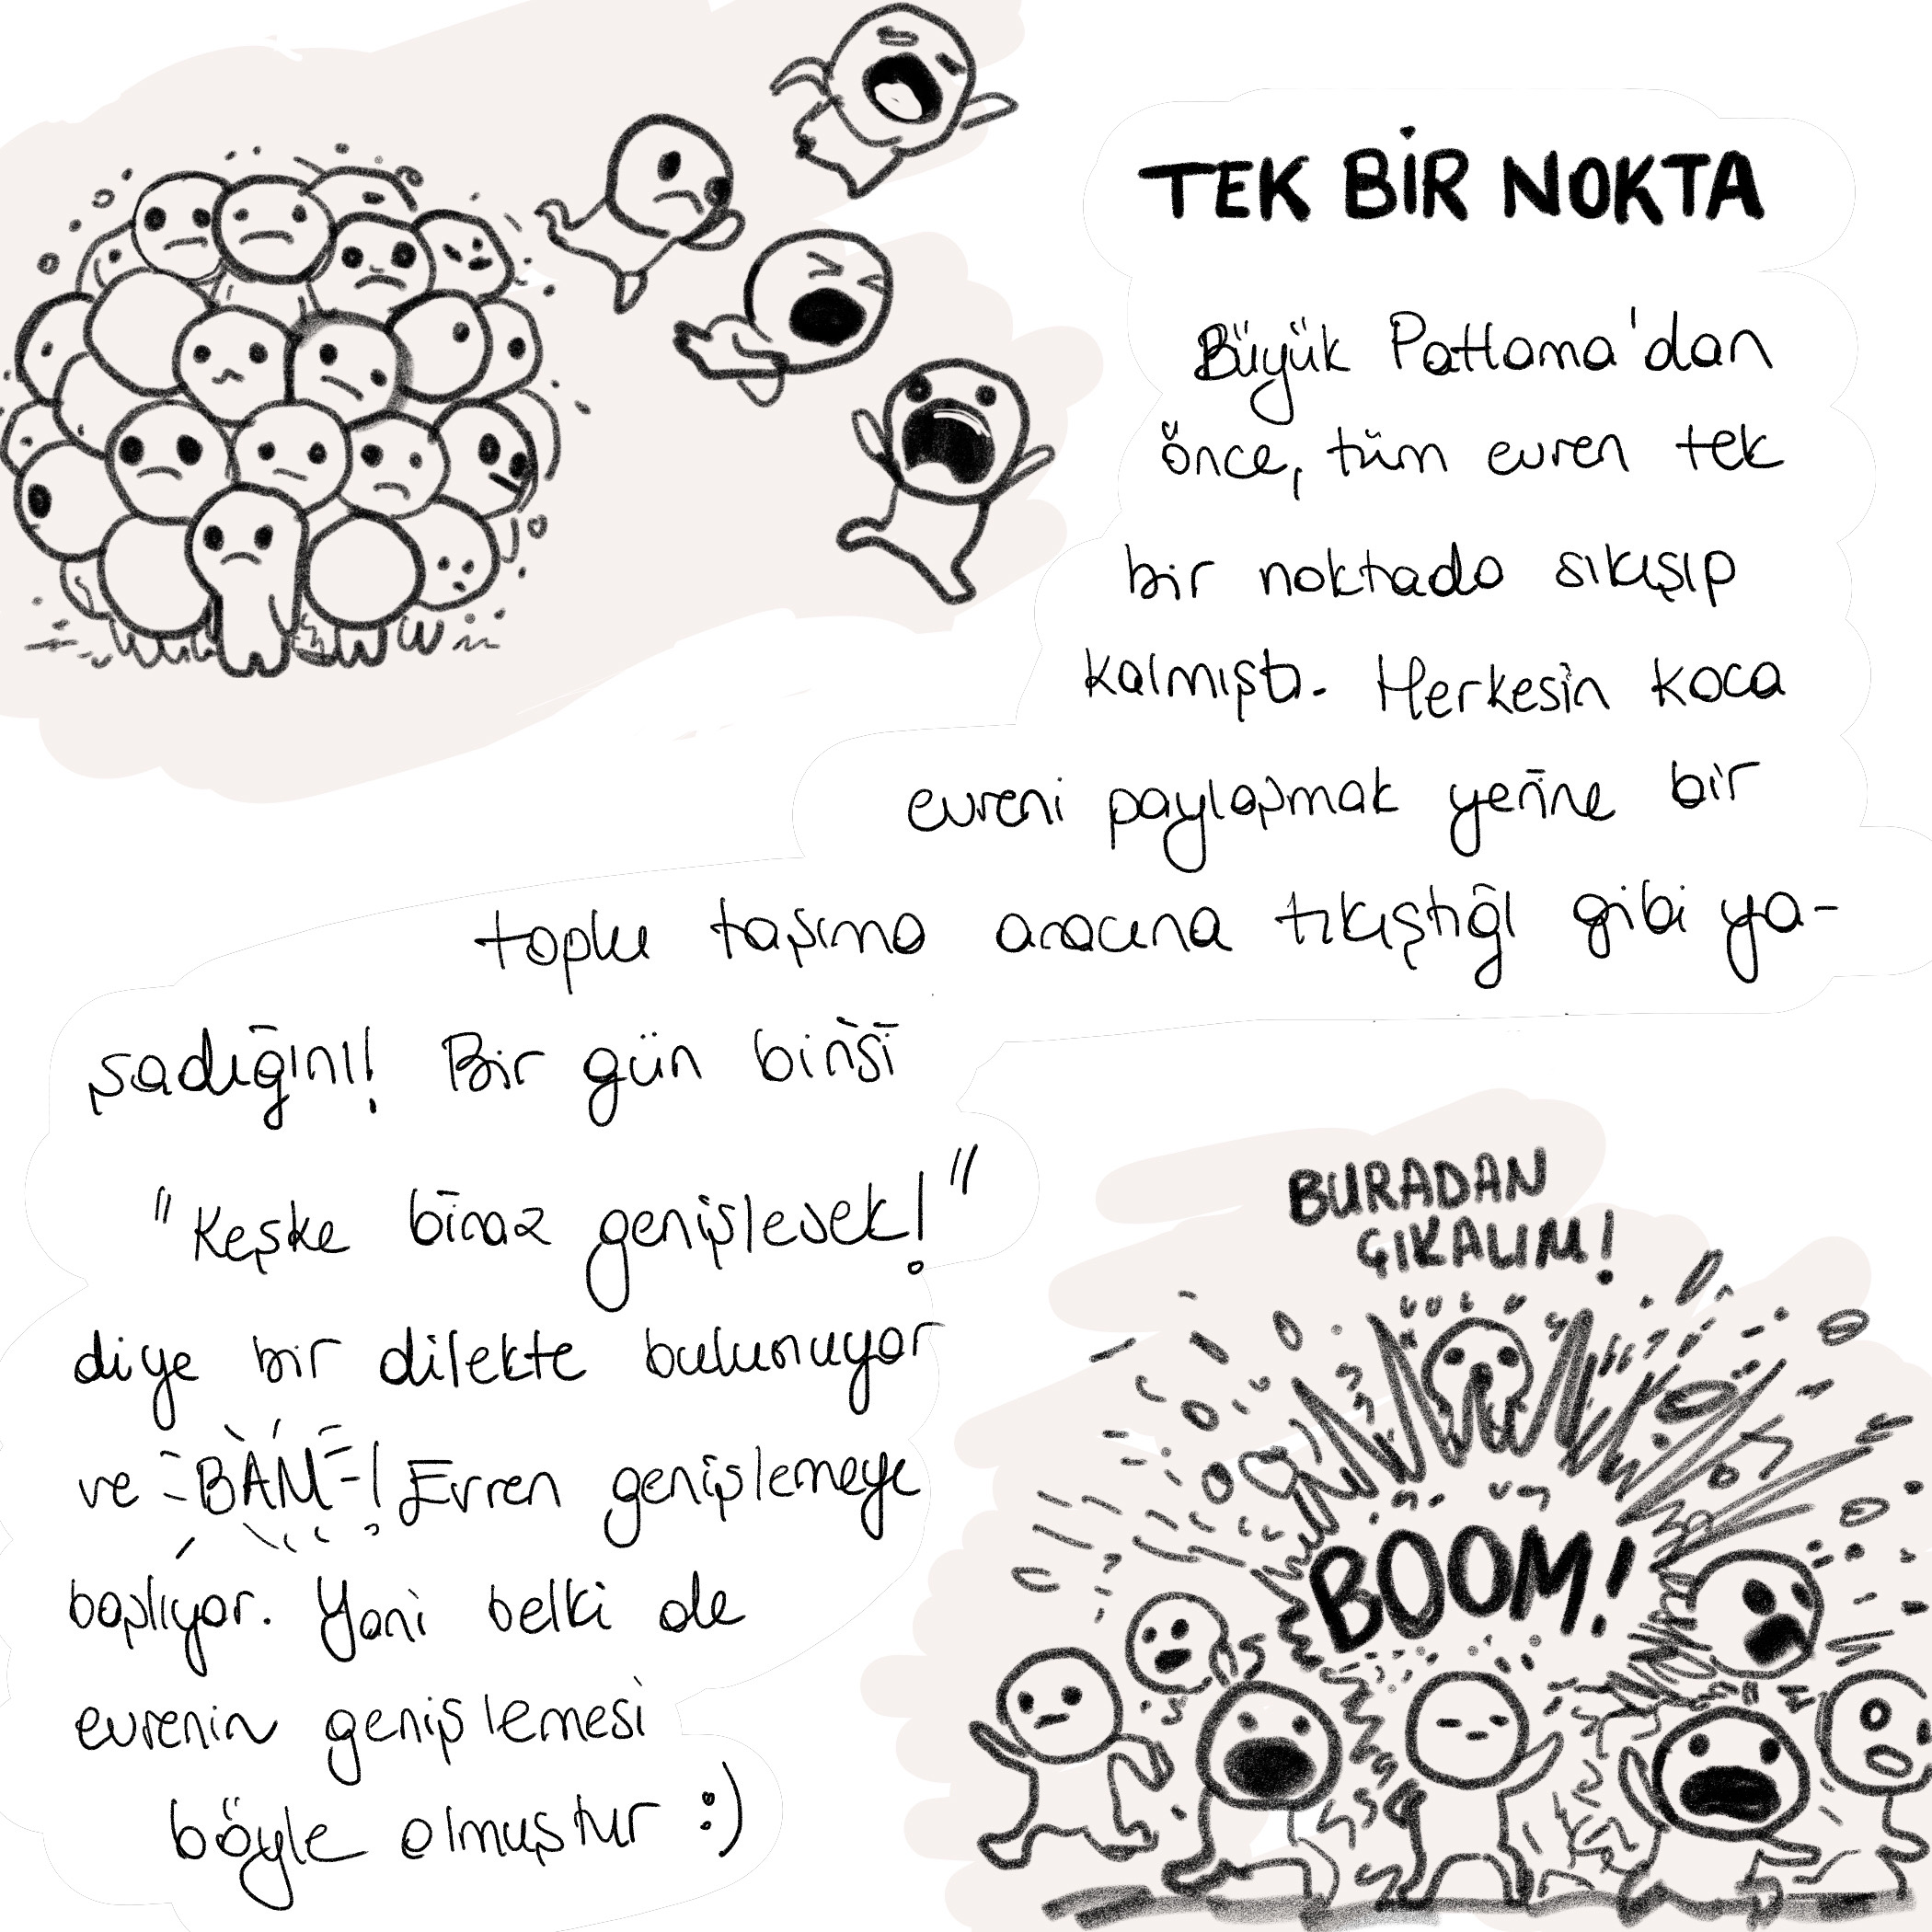 TEK BİR NOKTA
Büyük Patlama'dan
önce, tüm evren tek
bir noktada sıkışıp
kalmıştı. Herkesin koca
evreni paylaşmak yerine bir
toplu taşıma aracına tıkıştığı gibi ya-
şadığını! Bir gün birisi
"Keşke biraz genişlesek!"
diye bir dilekte bulunuyor
ve BAM! Evren genişlemeye
başlıyor. Yani belki de
evrenin genişlemesi
böyle olmuştur :)
BURADAN
ÇIKALIM!
BOOM!